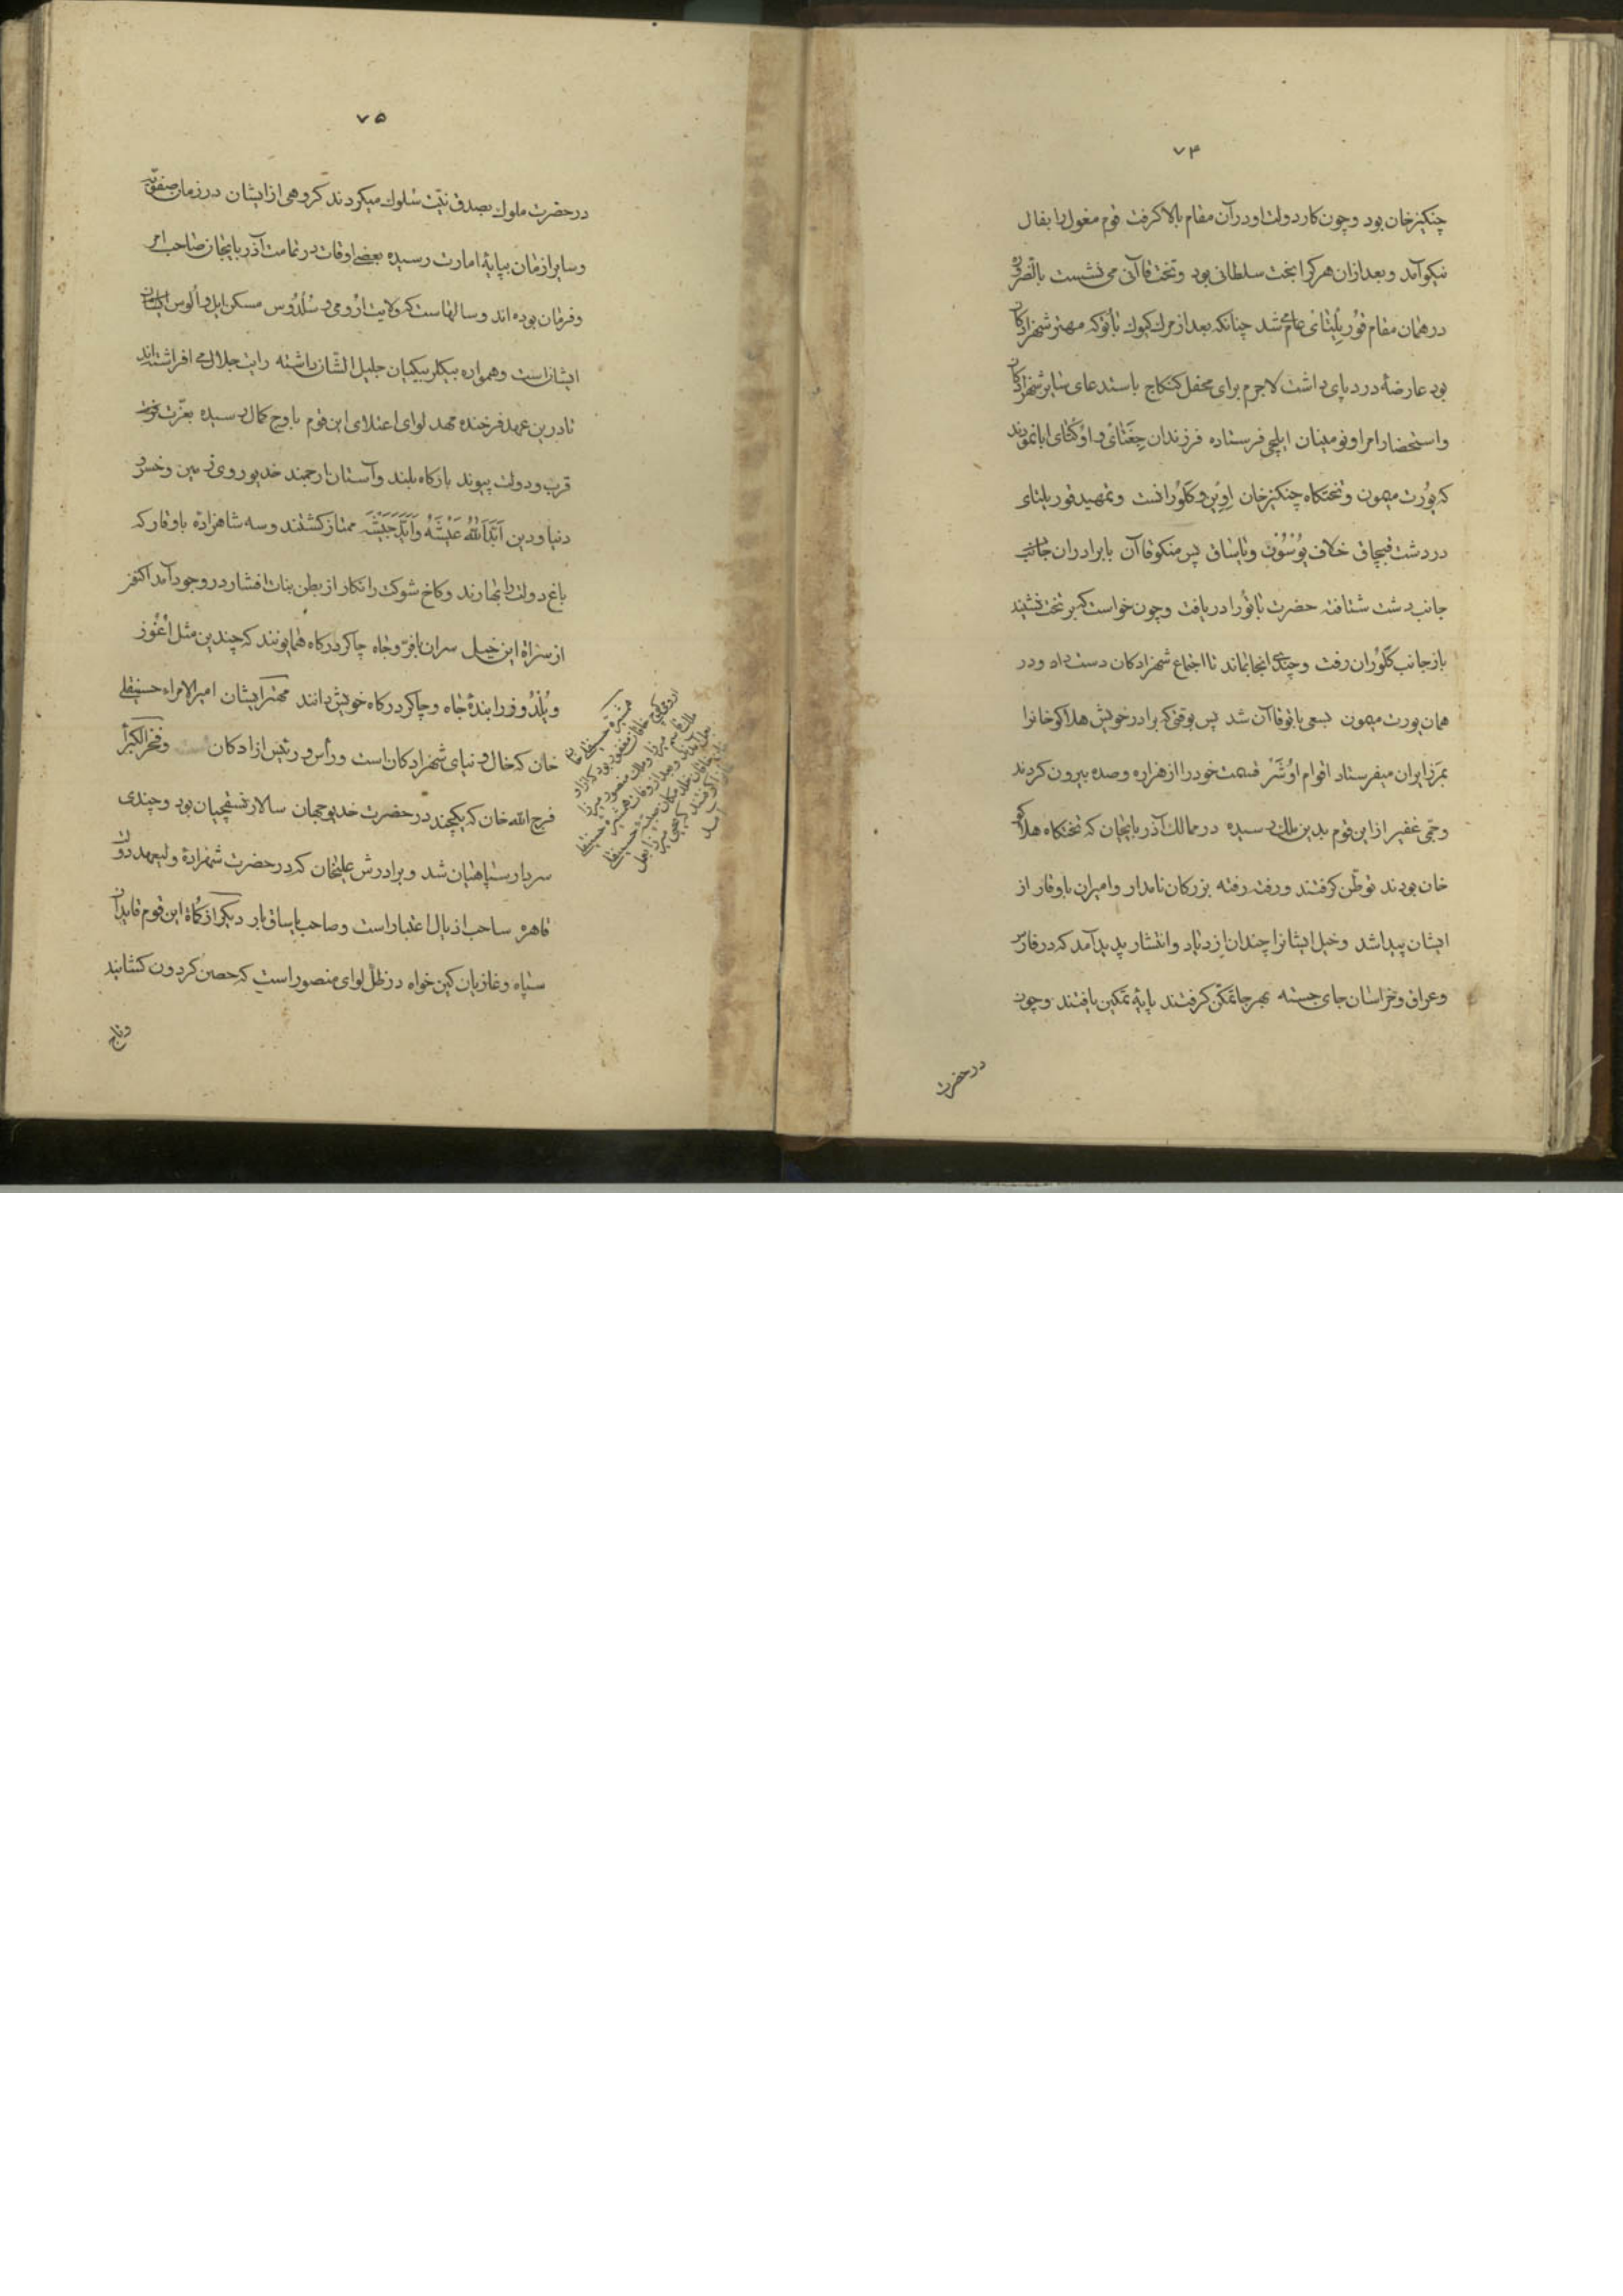 ۷۴
چنکیزخان بود وچون کار دولت او در آن مقام بالا کرفت قوم مغول را بفال
نیکو آمد وبعد ازان هرکرا بخت سلطانی بود وتخت قاآنی می نشست بالضروره
در همان مقام قوریلتای عام می شد چنانکه بعد از مرک کیوک باتو که مهتر شهزادکان
بود عارضهٔ درد پای داشت لاجرم برای محفل کنکاج باستدعای سایر شهزادکان
واستحضار امرا ونومینان ایلچی فرستاده فرزندان جغتای واوکتای ابا نمودند
که یورت میمون وتختکاه چنکیزخان اونن وکلورانست وتمهید قوریلتای
در دشت قبچاق خلاف یوسون ویاساق پس منکوقاآن با برادران
جانب دشت شتافته حضرت باتو را دریافت وچون خواست که بر تخت نشیند
باز جانب کلوران رفت وچندی انجا بماند تا اجتماع شهزادکان دست داد ودر
همان یورت میمون بسعی باتو قاآن شد پس بوقتی که برادر خویش هلاکوخانرا
بمرز ایران میفرستاد اقوام اوشر قسمت خود را از هزاره وصده بیرون کردند
وجمی غفیر از این قوم بدین ملک رسیده در ممالک آذربایجان که تختکاه هلاکو
خان بود توطن کرفتند ورفته رفته بزرکان نامدار وامیران باوقار از
ایشان پیدا شد وخیل ایشانرا چندان ازدیاد وانتشار پدید آمد که در فارس
وعراق وخراسان جای جسته بهر جا تمکن کرفتند پایهٔ تمکین یافتند وچون
در حضرت
۷۵
در حضرت ملوک بصدق نیت سلوک میکردند کروهی از ایشان در زمان صفویه
وسایر ازمان بپایهٔ امارت رسیده بعضی اوقات در تمامت آذربایجان صاحب امر
وفرمان بوده اند وسالهاست که ولایت ارومی وسلدوس مسکن ایل والوس
ایشانست وهمواره بیکلربیکیان جلیل الشان داشته رایت جلال می افراشته اند
تا درین عهد فرخنده مهد لوای اعتلای این قوم باوج کمال رسیده بعزت
قرب ودولت پیوند بارکاه بلند وآستان ارجمند خدیو روی زمین وخسرو
دنیا ودین اَبَّدَ اللّٰهُ عَیْشَهُ وَاَیَّدَ جَیْشَهُ ممتاز کشتند وسه شاهزادهٔ باوقار که
باغ دولت را بهارند وکاخ شوکت را نکار از بطن بنات افشار در وجود آمد اکنون
از سراة این خیل سران بافر وجاه چاکر درکاه همایونند که چندین مثل اغوز
ویلدوز را بندهٔ جاه وچاکر درکاه خویش دانند مهتر ایشان امیرالامراء حسینقلی
خان که خال ونیای شهزادکان است ورأس ورئیس ازادکان وفخرالکبرآ
فرج الله خان که یکچند در حضرت خدیو جهان سالار نسقچیان بود وچندی
سردار سپاهیان شد وبرادرش علیخان که در حضرت شهزادهٔ ولیعهد دولت
قاهره صاحب اذیال اعتبار است وصاحب یاساق بار دیکر از کماة این قوم قایدان
سپاه وغازیان کین خواه در ظل لوای منصور است که حصن کردون کشایند
همشیرهٔ حسینقلی خان
وتاج